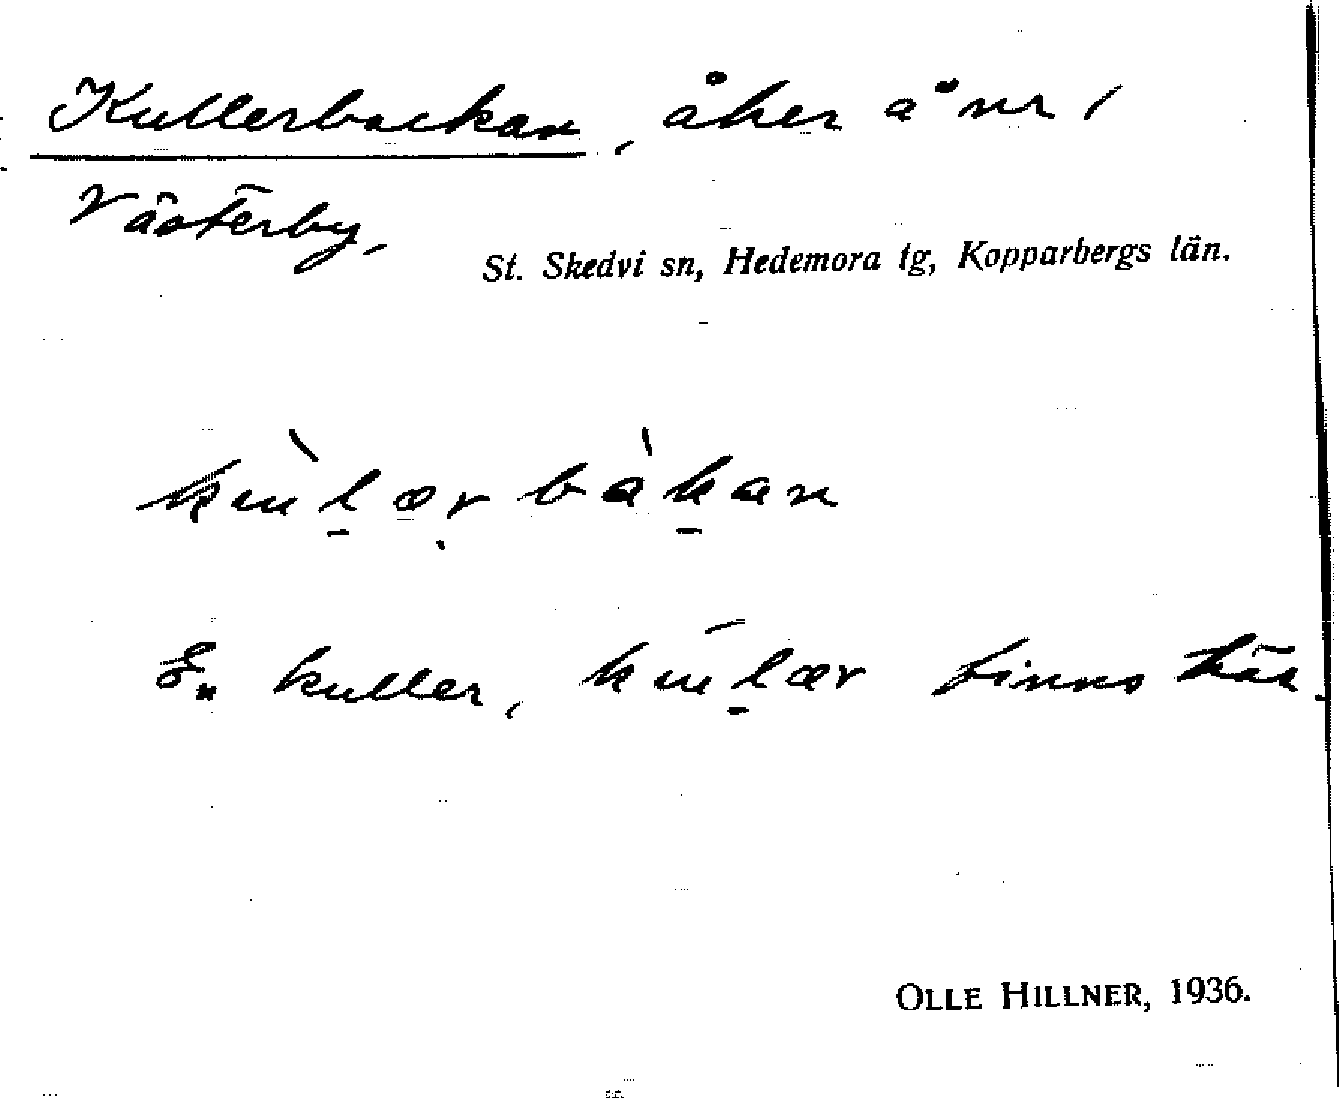 Kullerbackan, åker å nr 1
Västerby,
St. Skedvi sn, Hedemora tg, Kopparbergs län.
En kuller, finns här.
OLLE HILLNER, 1936.